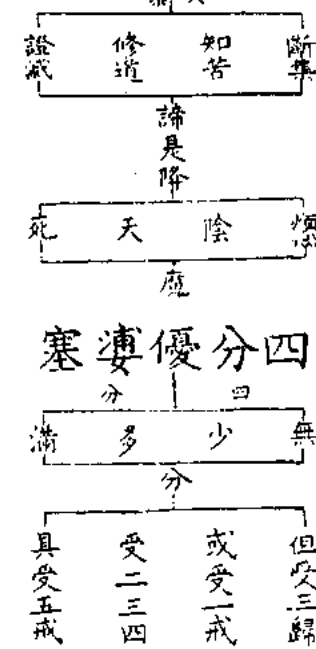 斷集 知苦 修道 證滅
諦是降
煩惱 陰 天 死
魔
四分優婆塞
四分
無 少 多 滿
分
但受三歸 或受一戒 受二三四 具受五戒